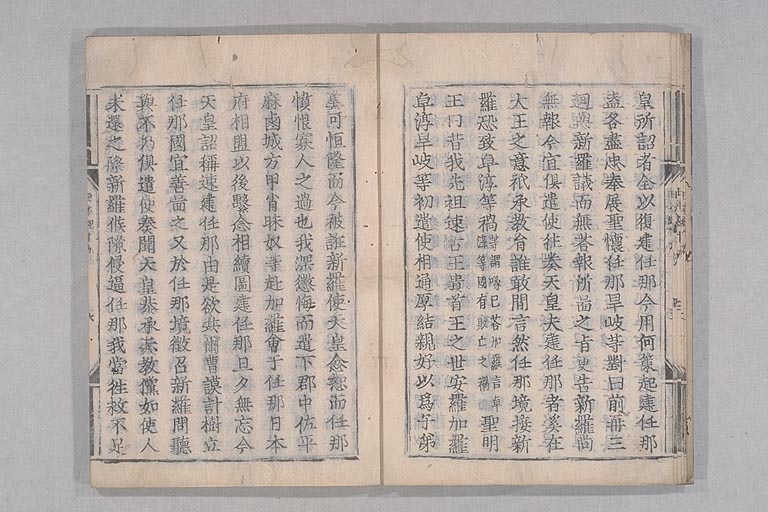 皇所詔者全以復建任那今用何策起建任那
盍各盡忠奉展聖懷任那旱岐等對曰前再三
廻與新羅議而無荅報所啚之旨更告新羅尚
無報今宜俱遣使往奏天皇夫建任那者爰在
大王之意祇承教旨誰敢間言然任那境接新
羅恐致卓淳等禍等謂㖨己呑加羅言卓淳等國有敗亡之禍聖明
王曰昔我先祖速古王貴首王之世安羅加羅
卓淳旱岐等初遣使相通厚結親好以爲子弟
冀可恒隆而今被誑新羅使天皇忿怒而任那
憤恨寡人之過也我深懲悔而遣下部中佐平
麻鹵城方甲背昧奴等赴加羅會于任那日本
府相盟以後繫念相續圖建任那旦夕無忘今
天皇詔稱速建任那由是欲共爾曹謨計樹立
任那國宜善啚之又於任那境徵召新羅問聽
與不乃俱遣使奏聞天皇恭承示教儻如使人
未還之際新羅候隙侵逼任那我當往救不足